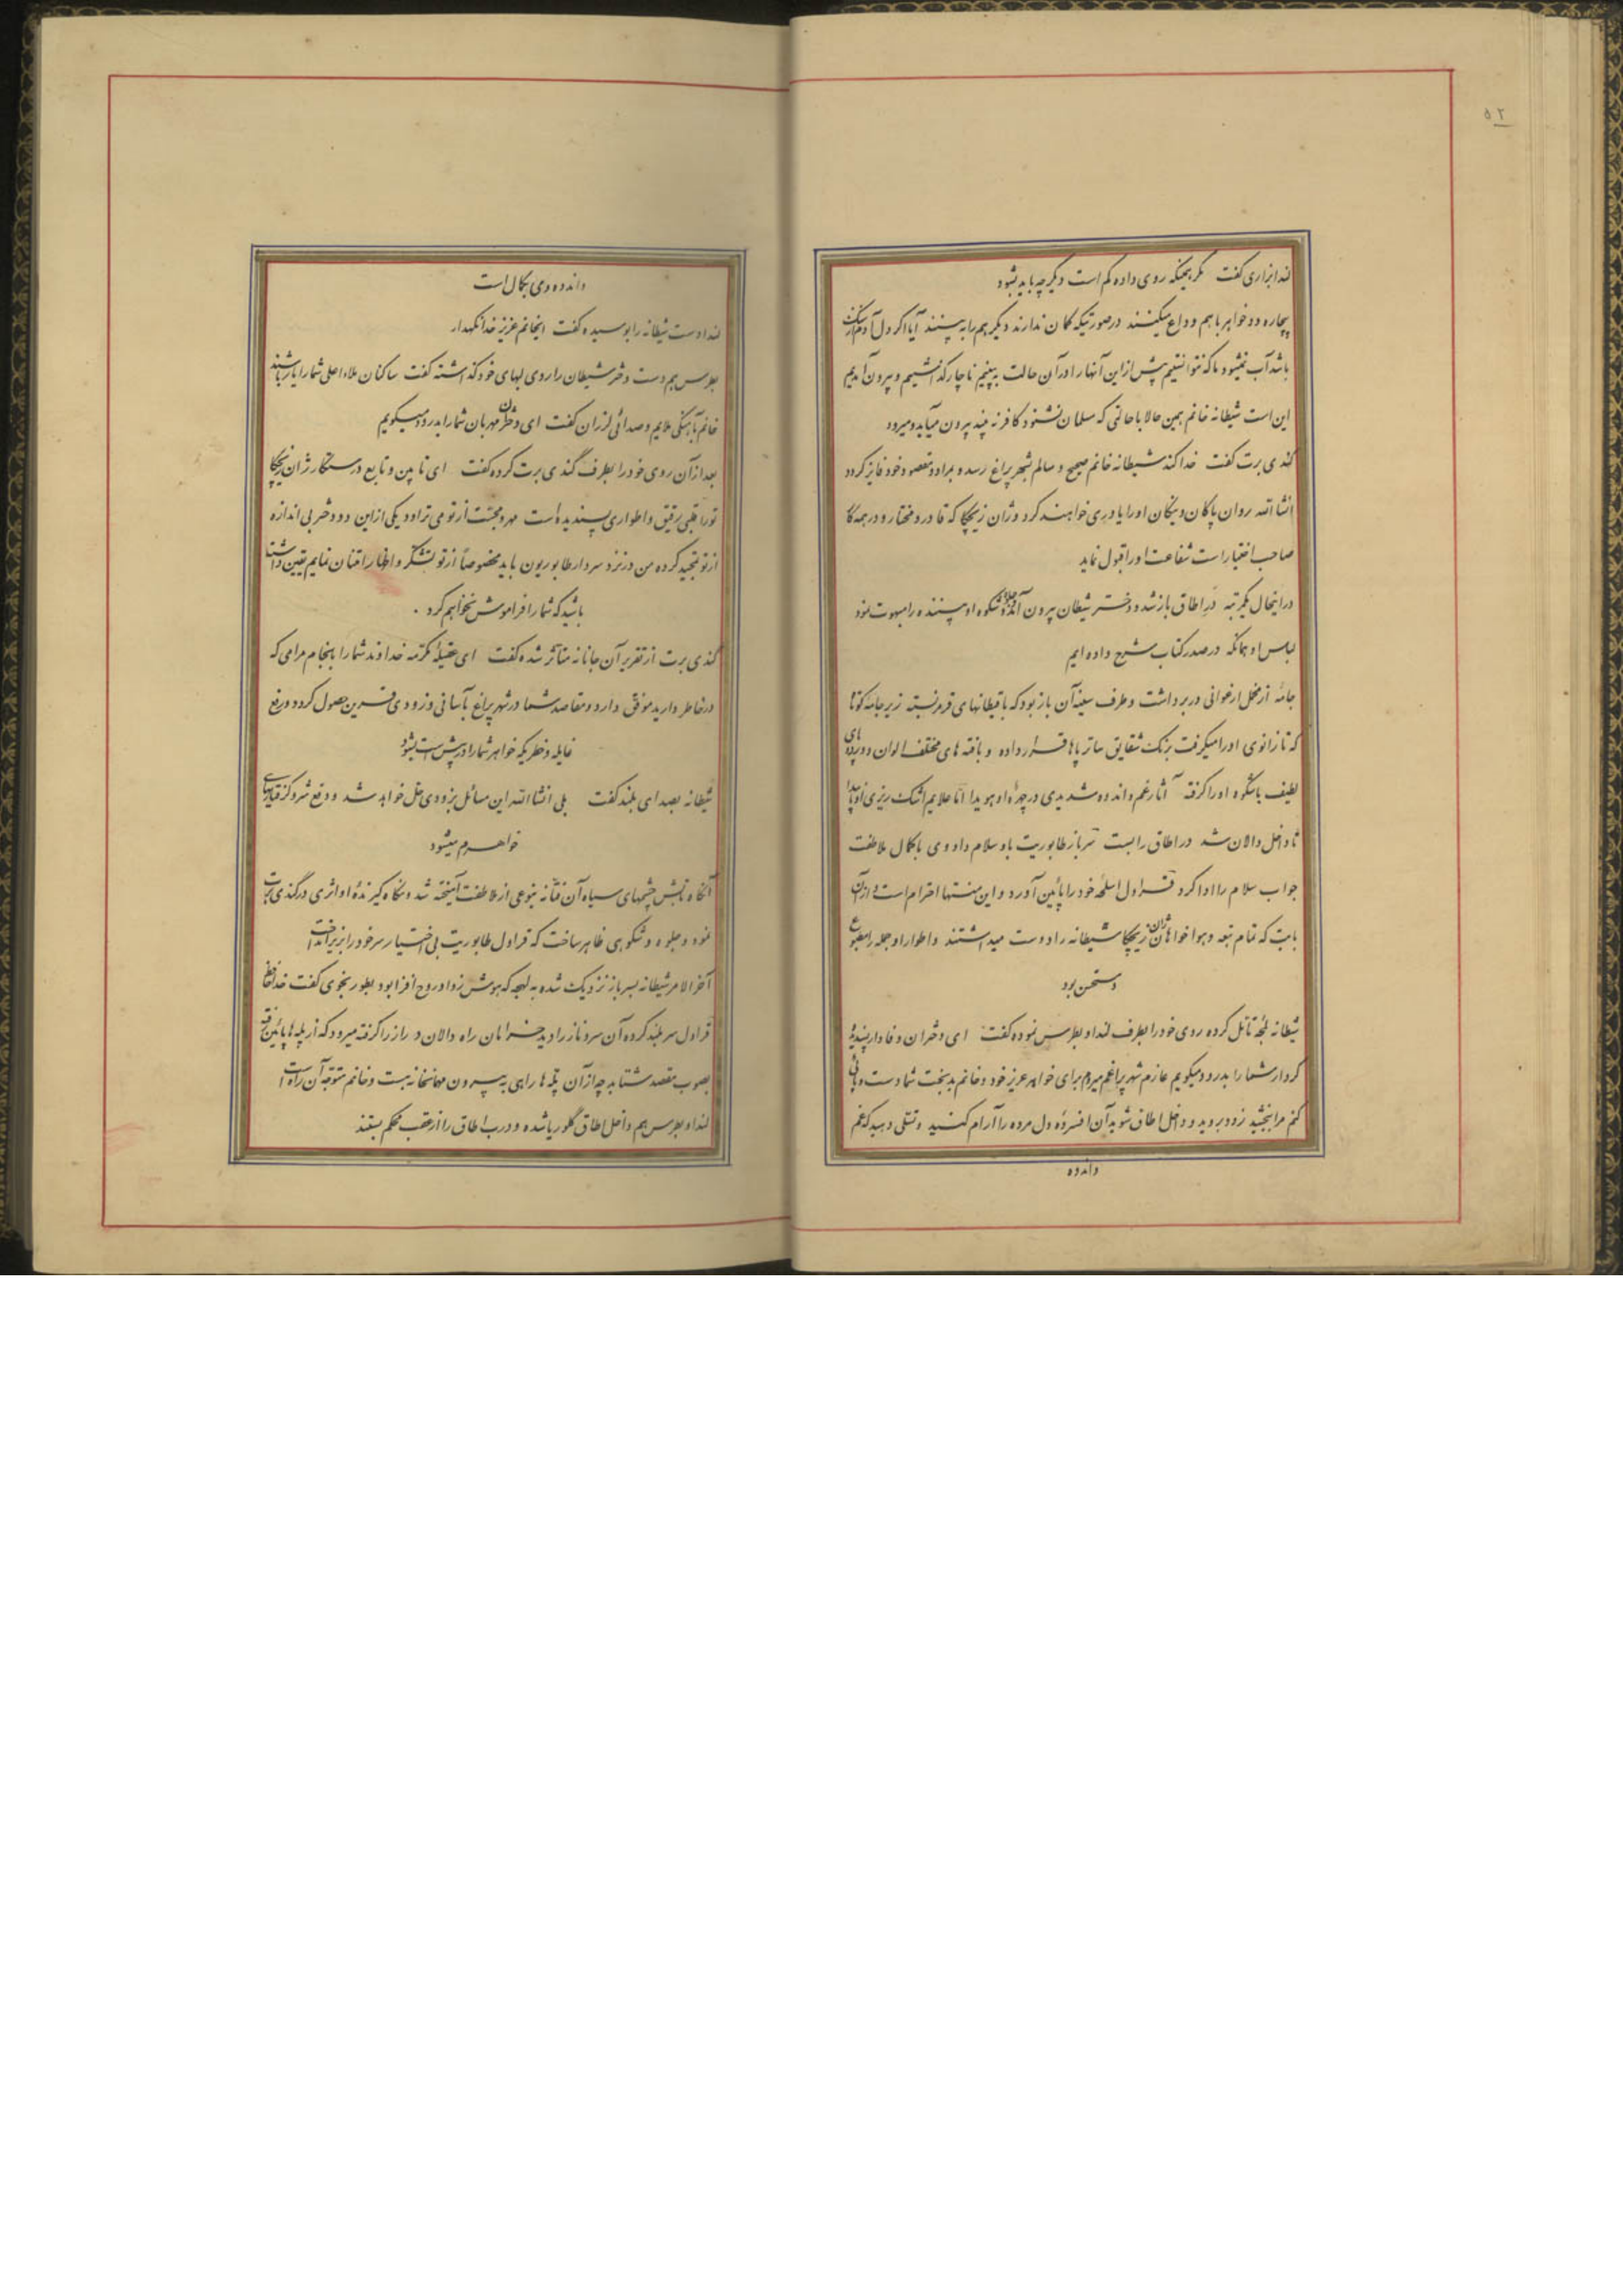 ۵۲
لندا بزاری گفت مگر بهمینکه روی داده کم است دیگر چه باید بشود
بیچاره دو خواهر با هم وداع میکنند درصورتیکه گمان ندارند دیگر هم را به بینند آیا اگر دل آدم از سنگ
باشد آب نمیشود ما که نتوانستیم بیش ازاین آنها را درآن حالت به بینیم ناچار گذاشتیم و بیرون آمدیم
این است شیطانه خانم همین حالا با حالتی که مسلمان نشنود کافر نه بیند بیرون میآید و میرود
گندی برت گفت خدا کند شیطانه خانم صحیح و سالم بشهر پراغ رسد و بمراد و مقصود خود فایز گردد
انشاالله روان پاکان و نیکان اورا یاوری خواهند کرد و ژان زیچکا که قادر و مختار و درهمه کار
صاحب اختیار است شفاعت اورا قبول نماید
درانحال یکمرتبه درِ اطاق بازشد و دختر شیطان بیرون آمد و جلال و شکوه او بیننده را مبهوت نمود
لباس او همانکه درصدر کتاب شرح داده ایم
جامهٔ از مخمل ارغوانی دربر داشت و طرف سینهٔ آن باز بود که با قیطانهای قرمز بسته زیر جامه کوتاه
که تا زانوی اورا میگرفت برنگ شقایق ساتر پاها قرار داده و بافته های مختلف الوان و پرده های
لطیف باشکوه اورا گرفته آثار غم و اندوه شدیدی درچهرهٔ او هویدا امّا علایم اشک ریزی ناپیدا
تا داخل دالان شد در اطاق را بست سرباز طابوریت باو سلام داد وی با کمال ملاطفت
جواب سلام را ادا کرد قراول اسلحهٔ خود را پائین آورد و این منتها احترام است و از آن
بابت که تمام تبعه و هوا خواهان ژان زیچکا شیطانه را دوست میداشتند و اطوار او جمله را مطبوع
و مستحسن بود
شیطانه لمحهٔ تأمّل کرده روی خود را بطرف لندا و بطرس نموده گفت ای دختران وفادار پسندیده
کردار شما را بدرود میگویم عازم شهر پراغم میروم برای خواهر عزیز خود و خانم بدبخت شما دست و پائی
کنم مرا ببخشید زود بروید و داخل اطاق شوید آن افسردهٔ دل مرده را آرام کنید و تسلّی دهید که غم
و اندوه
و اندوه وی بکمال است
لندا دست شیطانه را بوسیده گفت ایخانم عزیز خدا نگهدار
بطرس هم دست دختر شیطان را روی لبهای خود گذاشته گفت ساکنان ملاء اعلی شما را یار باشند
خانم بآهنگی ملایم و صدائی لرزان گفت ای دختران مهربان شما را بدرود میگویم
بعد ازآن روی خود را بطرف گندی برت کرده گفت ای تابین و تابع درستکار ژان زیچکا
تورا قلبی رقیق و اطواری پسندیده است مهر و محبّت از تو می تراود و یکی ازاین دو دختر بی اندازه
از تو تمجید کرده من درنزد سردار طابوریون باید مخصوصاً از تو تشکّر و اظهار امتنان نمایم یقین داشته
باشید که شما را فراموش نخواهم کرد .
گندی برت از تقریر آن جانانه متأثّر شده گفت ای عقیلهٔ مکرّمه خداوند شما را بانجام مرامی که
درخاطر دارید موفّق دارد و مقاصد شما درشهر پراغ بآسانی و زودی قرین حصول گردد و رفع
غایله و خطریکه خواهر شما را درپیش است بشود
شیطانه بصدای بلند گفت بلی انشاالله این مسائل بزودی حل خواهد شد و دفع شر و گزند
خواهرم میشود
آنگاه تابش چشمهای سیاه آن فتّانه بنوعی از ملاطفت آمیخته شد و نگاه گیرندهٔ او اثری در گندی برت
نمود و جلوه و شکوهی ظاهر ساخت که قراول طابوریت بی اختیار سر خود را بزیر انداخت
آخرالامر شیطانه بسرباز نزدیک شده به لهجه که هوش زدا و روح افزا بود بطور نجوی گفت خدا حافظ
قراول سر بلند کرده آن سرو ناز را دید خرامان راه دالان دراز را گرفته میرود که از پله ها پائین رفته
بصوب مقصد شتابد چه ازآن پلّه ها راهی به بیرون مهمانخانه نیست و خانم متوجّه آن راه است
لندا و بطرس هم داخل اطاق گلوریا شده و درب اطاق را از عقب محکم بستند